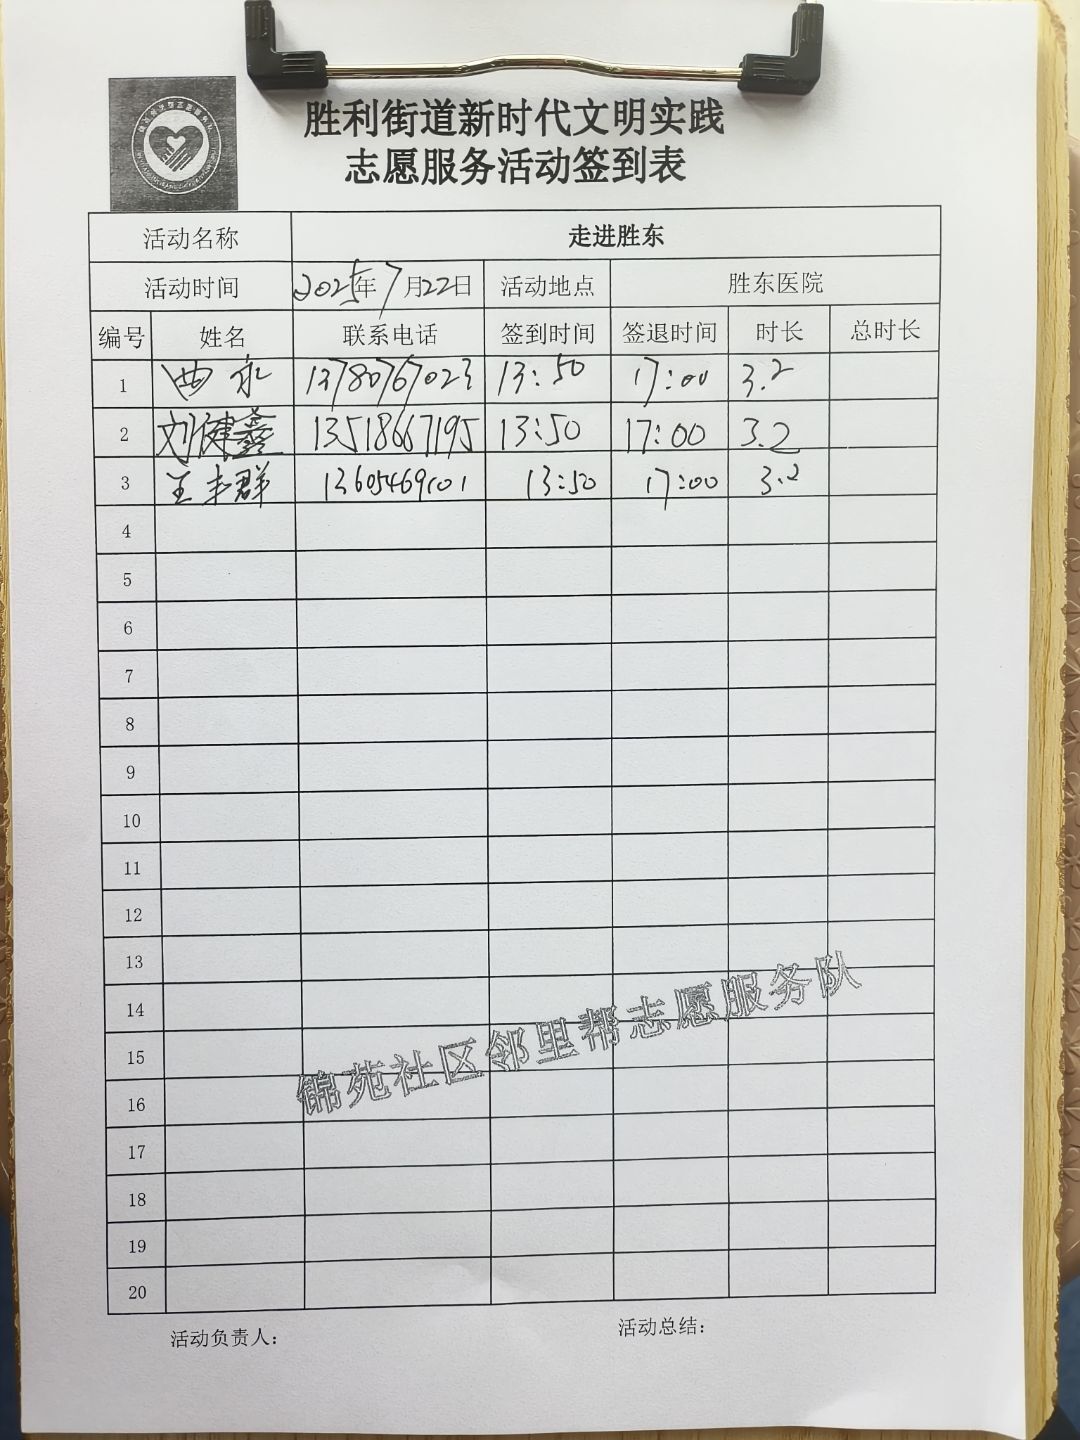 胜利街道新时代文明实践
志愿服务活动签到表
活动名称 走进胜东
活动时间 2025年7月22日 活动地点 胜东医院
编号 姓名 联系电话 签到时间 签退时间 时长 总时长
1 13780767023 13:50 17:00 3.2
2 刘健鑫 13518667195 13:50 17:00 3.2
3 王丰群 13605469101 13:50 17:00 3.2
4
5
6
7
8
9
10
11
12
13
14
15
16
17
18
19
20
锦苑社区邻里帮志愿服务队
活动负责人: 活动总结: